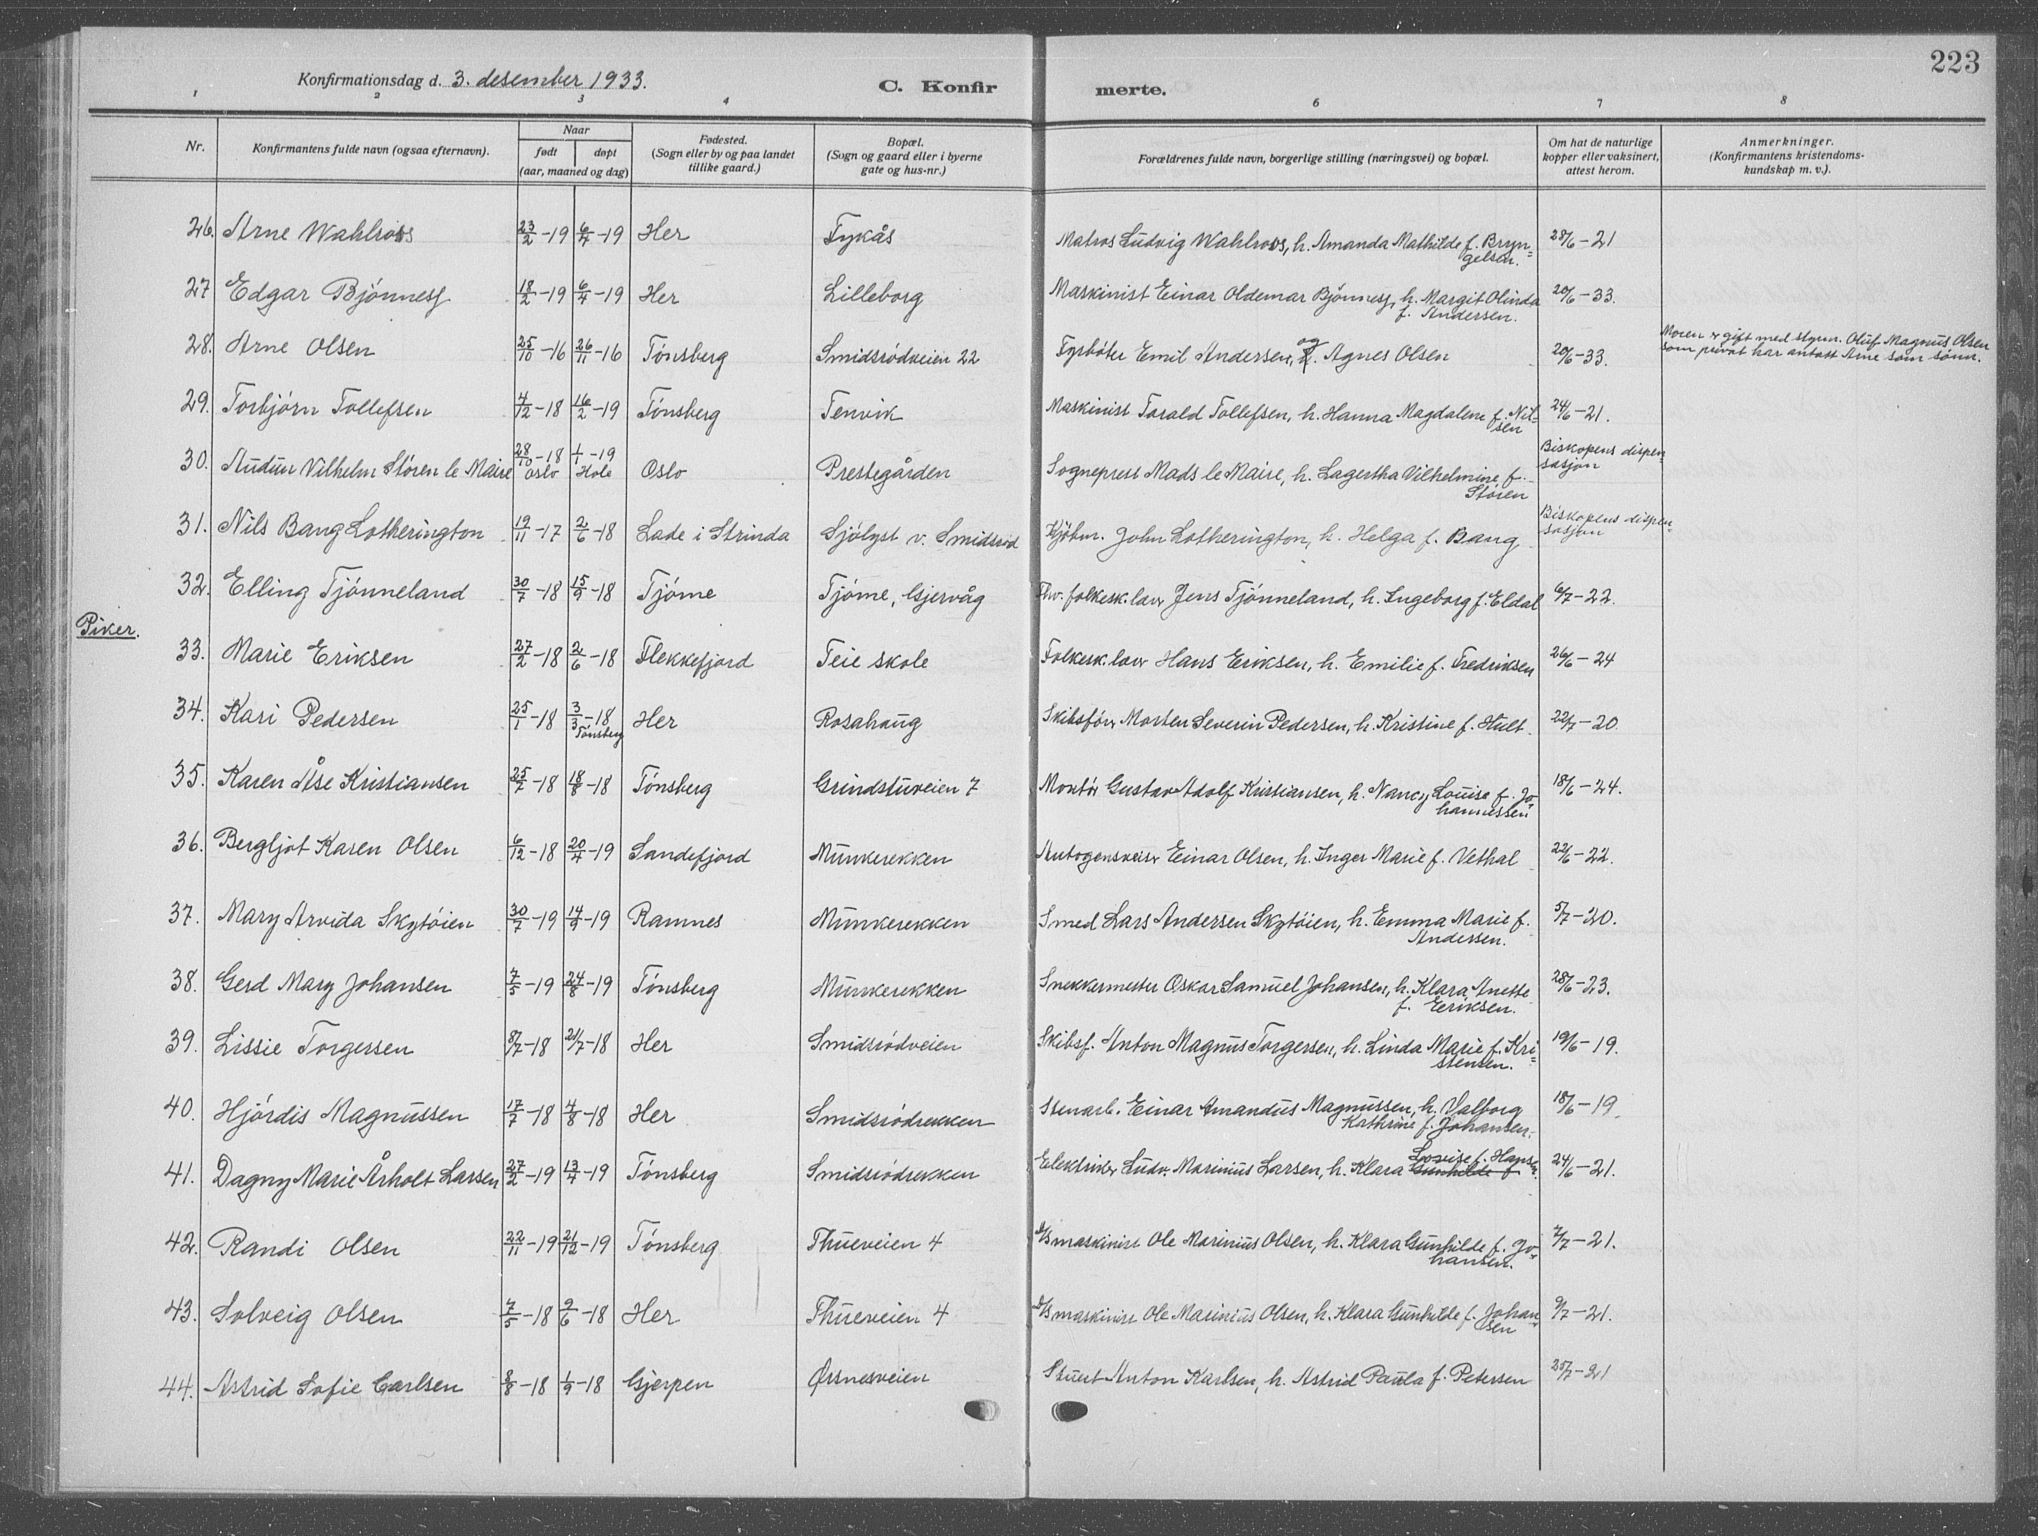 223
Konfirmationsdag d. 3. desember 1933. C. Konfir merte.
1 2 3 4 6 7 8
Nr. Konfirmantens fulde navn (ogsaa efternavn). Naar født døpt (aar, maaned og dag) Fødested. (Sogn eller by og paa landet tillike gaard.) Bopæl. (Sogn og gaard eller i byerne gate og hus-nr.) Forældrenes fulde navn, borgerlige stilling (næringsvei) og bopæl. Om hat de naturlige kopper eller vaksinert, attest herom. Anmerkninger. (Konfirmantens kristendoms-kundskap m. v.).
26. Arne Wahlroos 23/2-19 6/4-19 Her Tykås Matros Ludvig Wahlroos, h. Amanda Mathilde f. Bryn=gelsen. 28/6-21
27 Edgar Bjønnes 18/2-19 6/4-19 Her Lilleborg Maskinist Einar Oldemar Bjønnes, h. Margit Olinda f. Andersen. 20/6-33.
28. Arne Olsen 25/10-16 26/11-16 Tønsberg Smidsrødveien 22 Fyrbøter Emil Andersen, og Agnes Olsen 20/6-33. Moren er gift med styrm. Oluf Magnus Olsen som privat har antatt Arne som sønn.
29. Torbjørn Tollefsen 4/12-18 16/2-19 Tønsberg Tenvik Maskinist Torald Tollefsen, h. Hanna Magdalene f. Nil-sen 24/6-21.
30. Audun Vilhelm Støren le Maire 28/10-18 Oslo 1/1-19 Hole Oslo Prestegården Sogneprest Mads le Maire, h. Lagertha Vilhelmine f. Støren Biskopens dispen-sasjon
31. Nils Bang Lotherington 19/11-17 2/6-18 Lade i Strinda Sjölyst v. Smidsrød Kjøbm. John Lotherington, h. Helga f. Bang Biskopens dispen-sasjon
32. Elling Tjønneland 30/7-18 15/9-18 Tjøme Tjøme, Gjervåg Fhv. folkesk.lær. Jens Tjønneland, h. Ingeborg f. Eldal 6/7-22.
Piker.
33. Marie Eriksen 27/2-18 2/6-18 Flekkefjord Teie skole Folkesk.lær. Hans Eriksen, h. Emilie f. Fredriksen 26/6-24
34. Kari Pedersen 25/1-18 3/3-18 Tønsberg Her Rosahaug Skibsfør. Morten Severin Pedersen, h. Kristine f. Hult. 22/7-20.
35. Karen Åse Kristiansen 25/7-18 18/8-18 Tønsberg Grindstuveien 7 Montør Gustav Adolf Kristiansen, h. Nancy Louise f. Jo-hannessen 18/6-24.
36. Bergljot Karen Olsen 6/12-18 20/4-19 Sandefjord Munkerekken Autogensveis. Einar Olsen, h. Inger Marie f. Vethal 22/6-22.
37. Mary Arvida Skytøien 30/7-19 14/9-19 Ramnes Munkerekken Smed Lars Andersen Skytøien, h. Emma Marie f. Andersen. 5/7-20.
38. Gerd Mary Johansen 7/5-19 24/8-19 Tønsberg Munkerekken Snekkermester Oskar Samuel Johansen, h. Klara Anette f. Eriksen. 28/6-23.
39. Lissie Torgersen 8/7-18 21/7-18 Her Smidsrødveien Skibsf. Anton Magnus Torgersen, h. Linda Marie f. Kri=stensen. 19/6-19.
40. Hjørdis Magnussen 17/7-18 4/8-18 Her Smidsrødrekken Stenarb. Einar Amandus Magnussen, h. Valborg Kathrine f. Johansen. 18/6-19.
41. Dagny Marie Årholt Larsen 27/2-19 13/4-19 Tønsberg Smidsrødrekken Elektriker Ludv. Marinius Larsen, h. Klara Gunhilde f Lovise f. Hansen. 24/6-21.
42. Randi Olsen 22/11-19 21/12-19 Tønsberg Thueveien 4 D/Smaskinist Ole Marinius Olsen, h. Klara Gunhilde f. Jo-hansen. 4/7-21.
43. Solveig Olsen 7/5-18 9/6-18 Her Thueveien 4 D/Smaskinist Ole Marinius Olsen, h. Klara Gunhilde f. Johan-sen 9/7-21.
44. Astrid Sofie Carlsen 8/8-18 1/9-18 Gjerpen Ørsnesveien Stuert Anton Karlsen, h. Astrid Paula f. Petersen 25/7-21